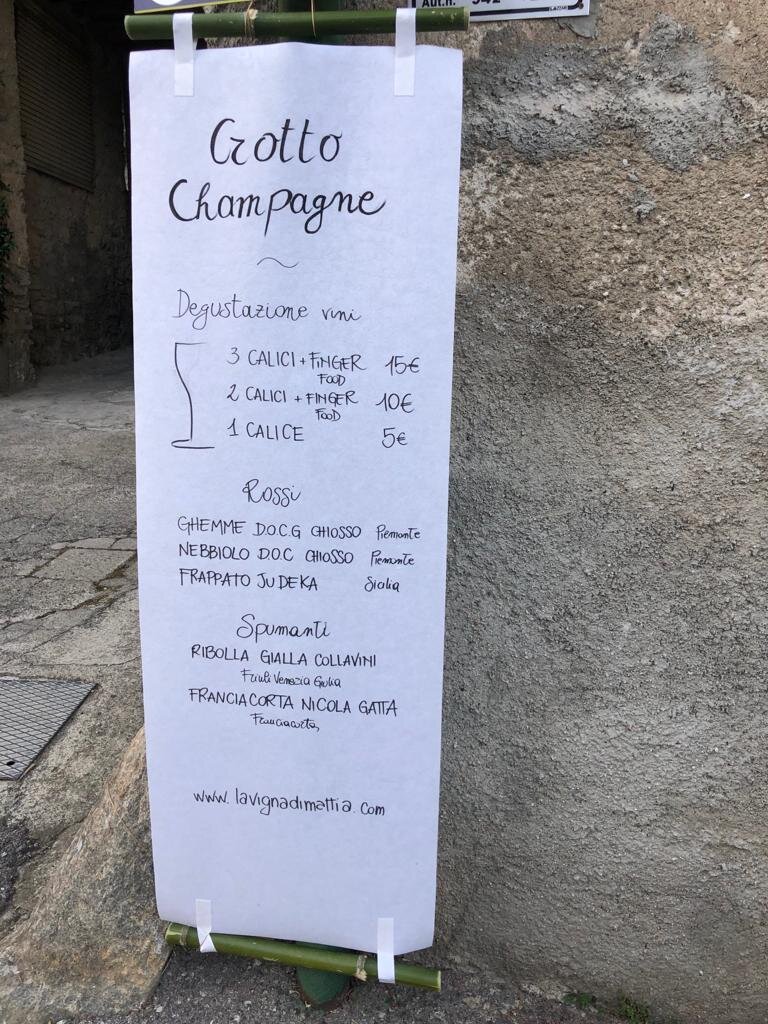 Grotto
Champagne
~
Degustazione vini
3 CALICI + FINGER FOOD 15€
2 CALICI + FINGER FOOD 10€
1 CALICE 5€
Rossi
GHEMME D.O.C.G CHIOSSO Piemonte
NEBBIOLO D.O.C CHIOSSO Piemonte
FRAPPATO JUDEKA Sicilia
Spumanti
RIBOLLA GIALLA COLLAVINI
Friuli Venezia Giulia
FRANCIACORTA NICOLA GATTA
Franciacorta
www.lavignadimattia.com